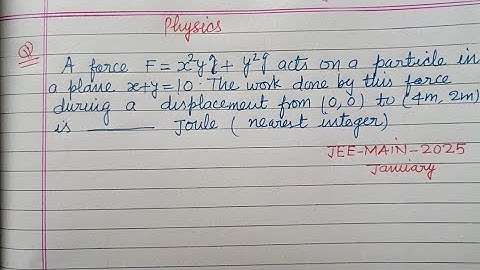 Physics
Q
A force F = x²y î + y² ĵ acts on a particle in
a plane x+y=10. The work done by this force
during a displacement from (0,0) to (4m, 2m)
is ______ Joule (nearest integer)
JEE-MAIN-2025
January